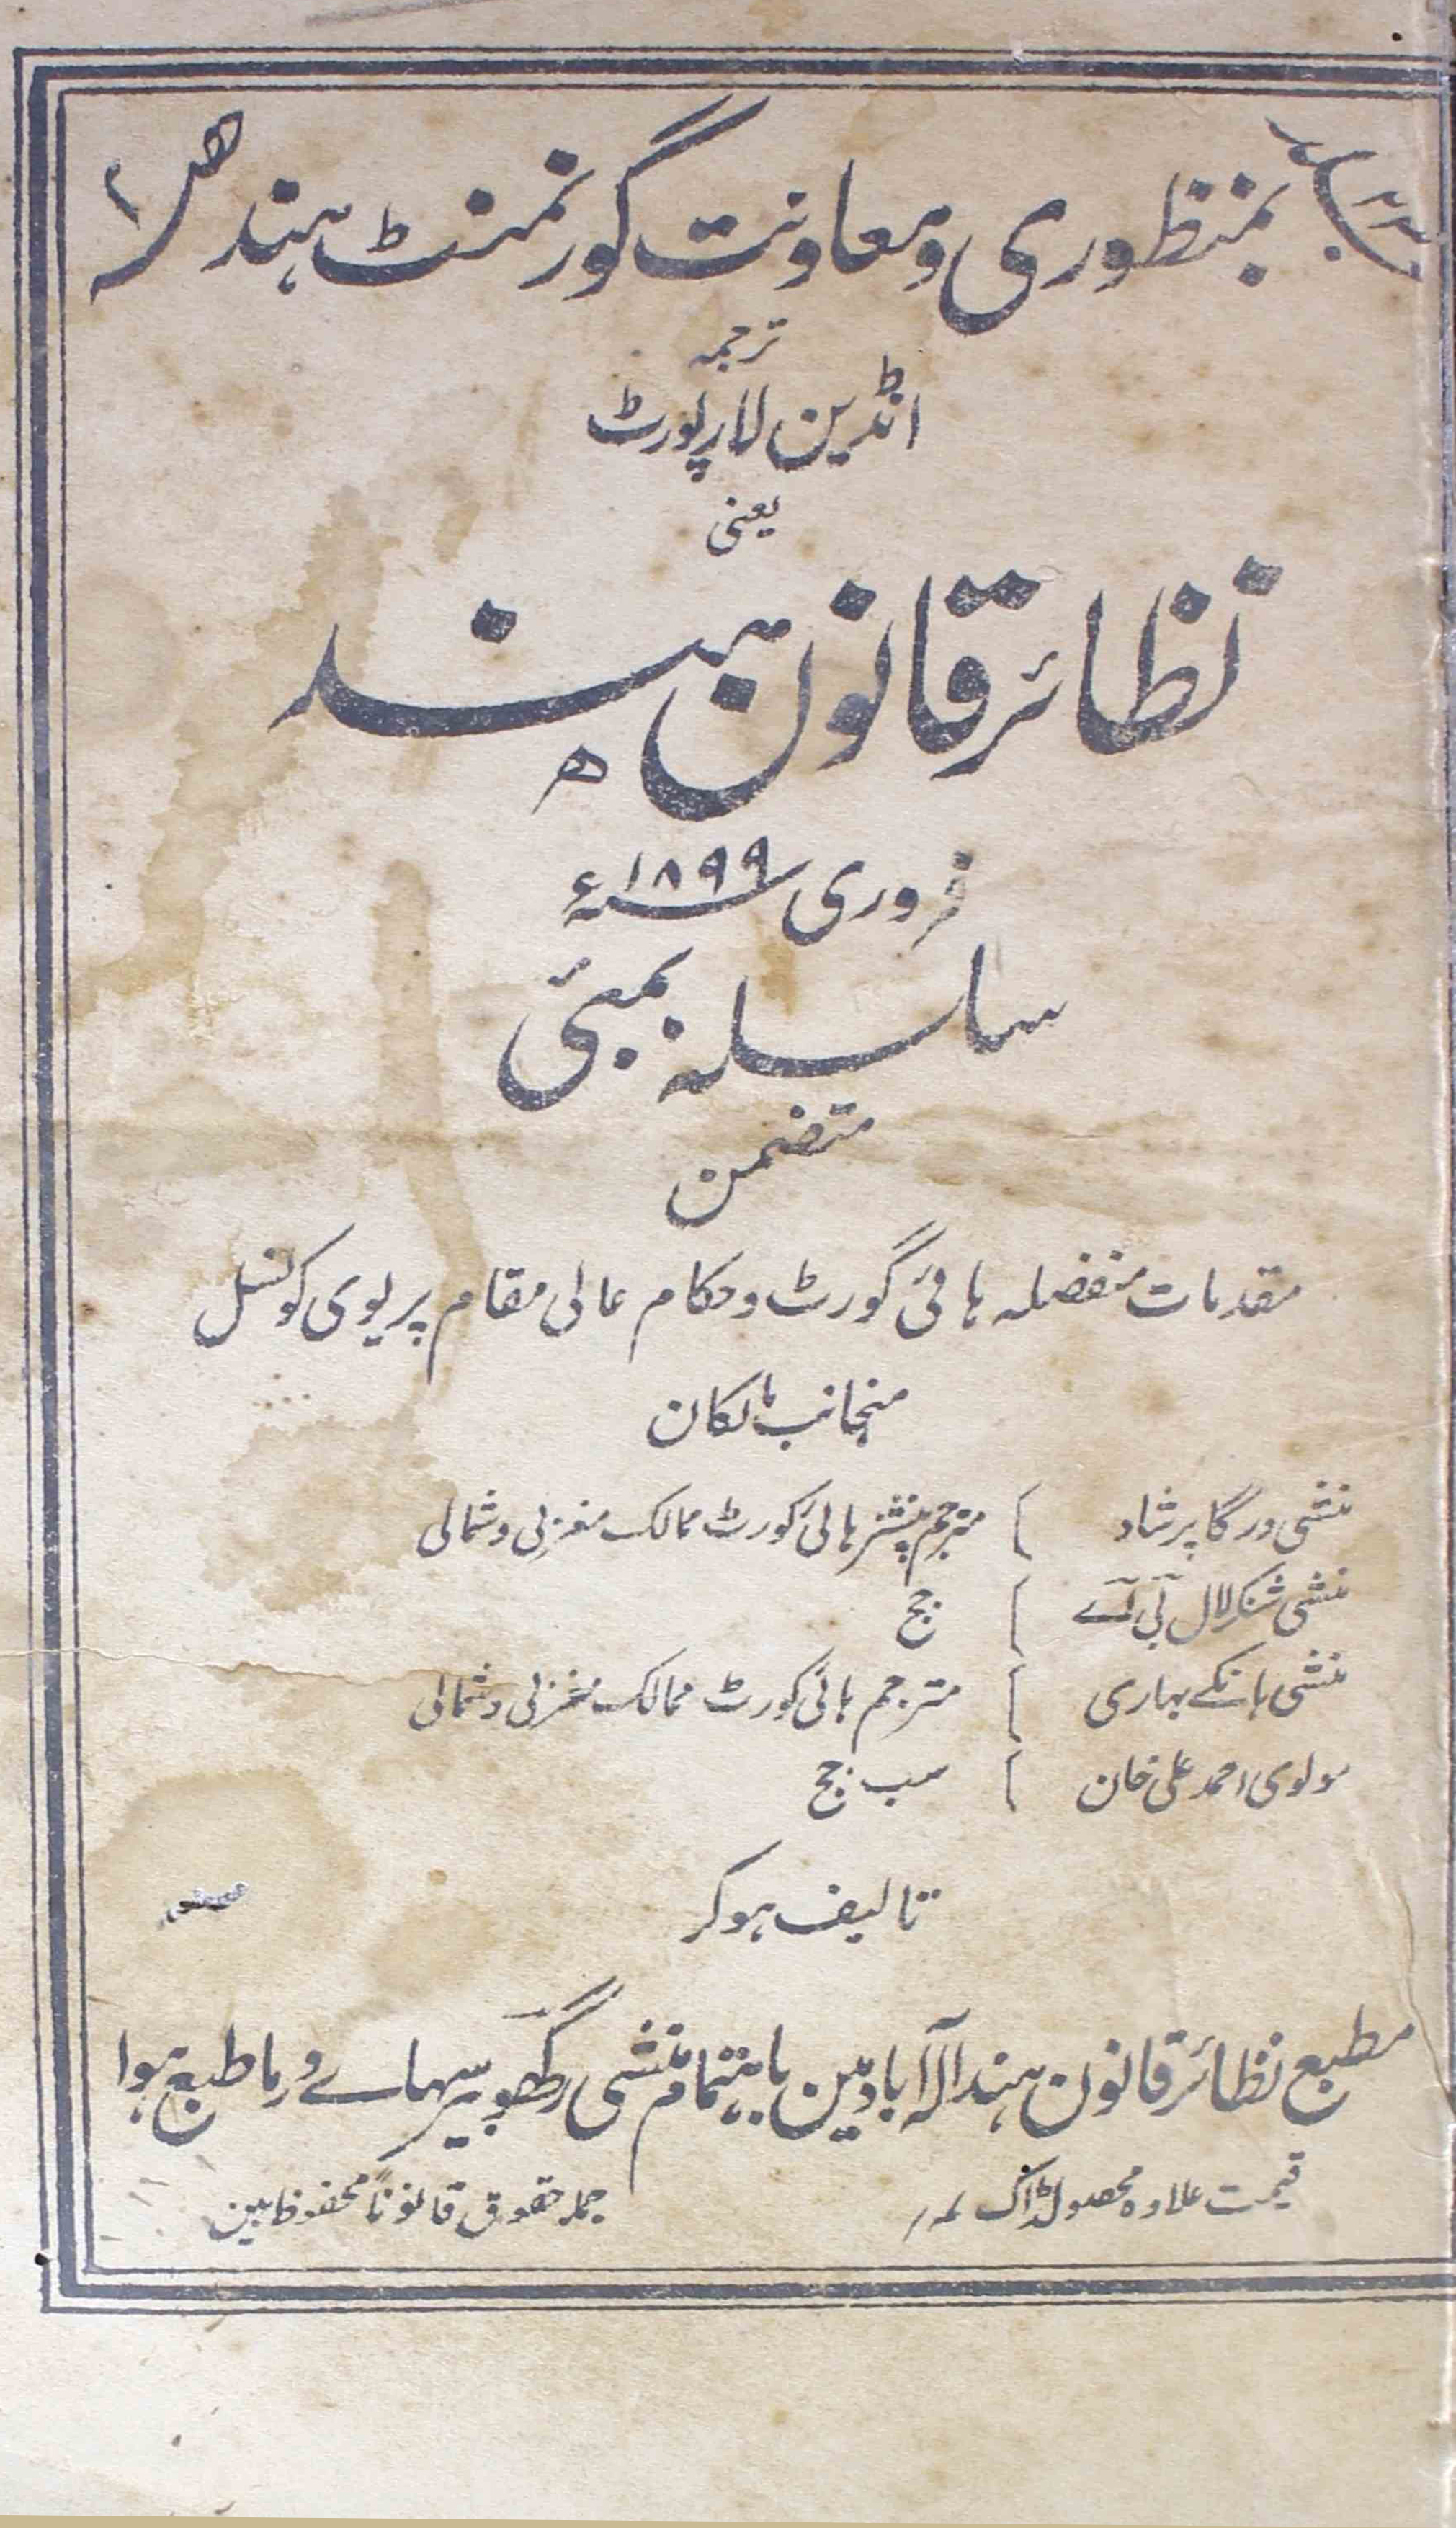 بمنظوری ومعاونت گورنمنٹ ہند
ترجمہ
انڈین لارپورٹ
یعنی
نظائر قانون ہند
فروری ۱۸۹۹ء
سلسلہ بمبئی
متضمن
مقدمات منفصلہ ہائی گورٹ وحکام عالی مقام پریوی کونسل
منجانب مالکان
منشی درگا پرشاد ) مترجم پنشنر ہائی کورٹ ممالک مغربی وشمالی
منشی شنکر لال بی اے ) جج
منشی بانکے بہاری ) مترجم ہائی کورٹ ممالک مغربی وشمالی
مولوی احمد علی خان ) سب جج
تالیف ہوکر
مطبع نظائر قانون ہند الہ آباد مین باہتمام منشی رگھوبیر سہاے ورما طبع ہوا
قیمت علاوہ محصول ڈاک
جملہ حقوق قانوناً محفوظ ہین